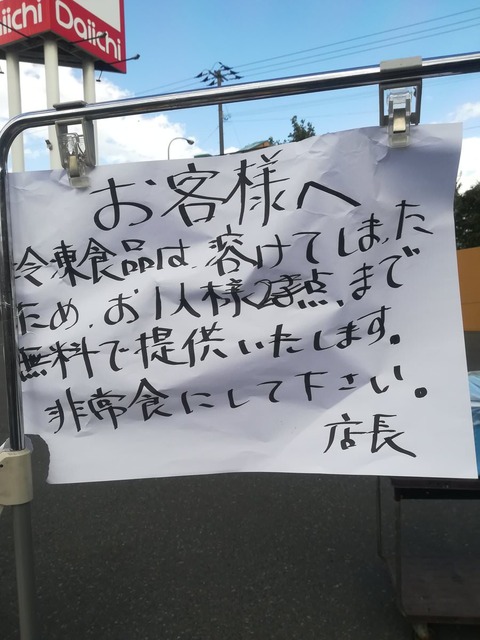 iichi
Daiichi
お客様へ
冷凍食品は、溶けてしまった
ため、お1人様 点、まで
無料で提供いたします。
非常食にして下さい。
店長